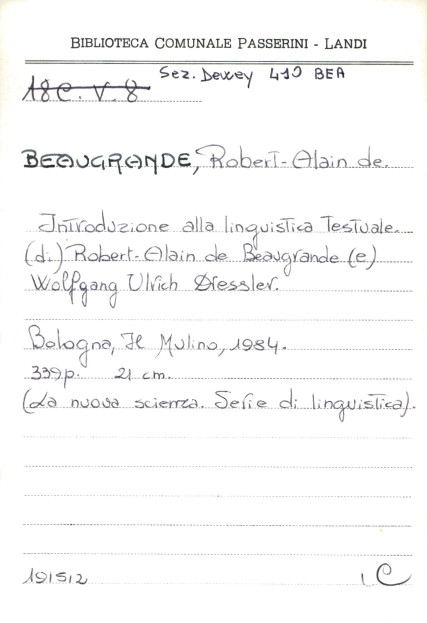 BIBLIOTECA COMUNALE PASSERINI - LANDI
Sez. Dewey 410 BEA
18C. V. 8
BEAUGRANDE, Robert-Alain de.
Introduzione alla linguistica Testuale.
(di) Robert-Alain de Beaugrande (e)
Wolfgang Ulrich Dressler.
Bologna, Il Mulino, 1984.
339p. 21 cm.
(La nuova scienza. Serie di linguistica).
191512